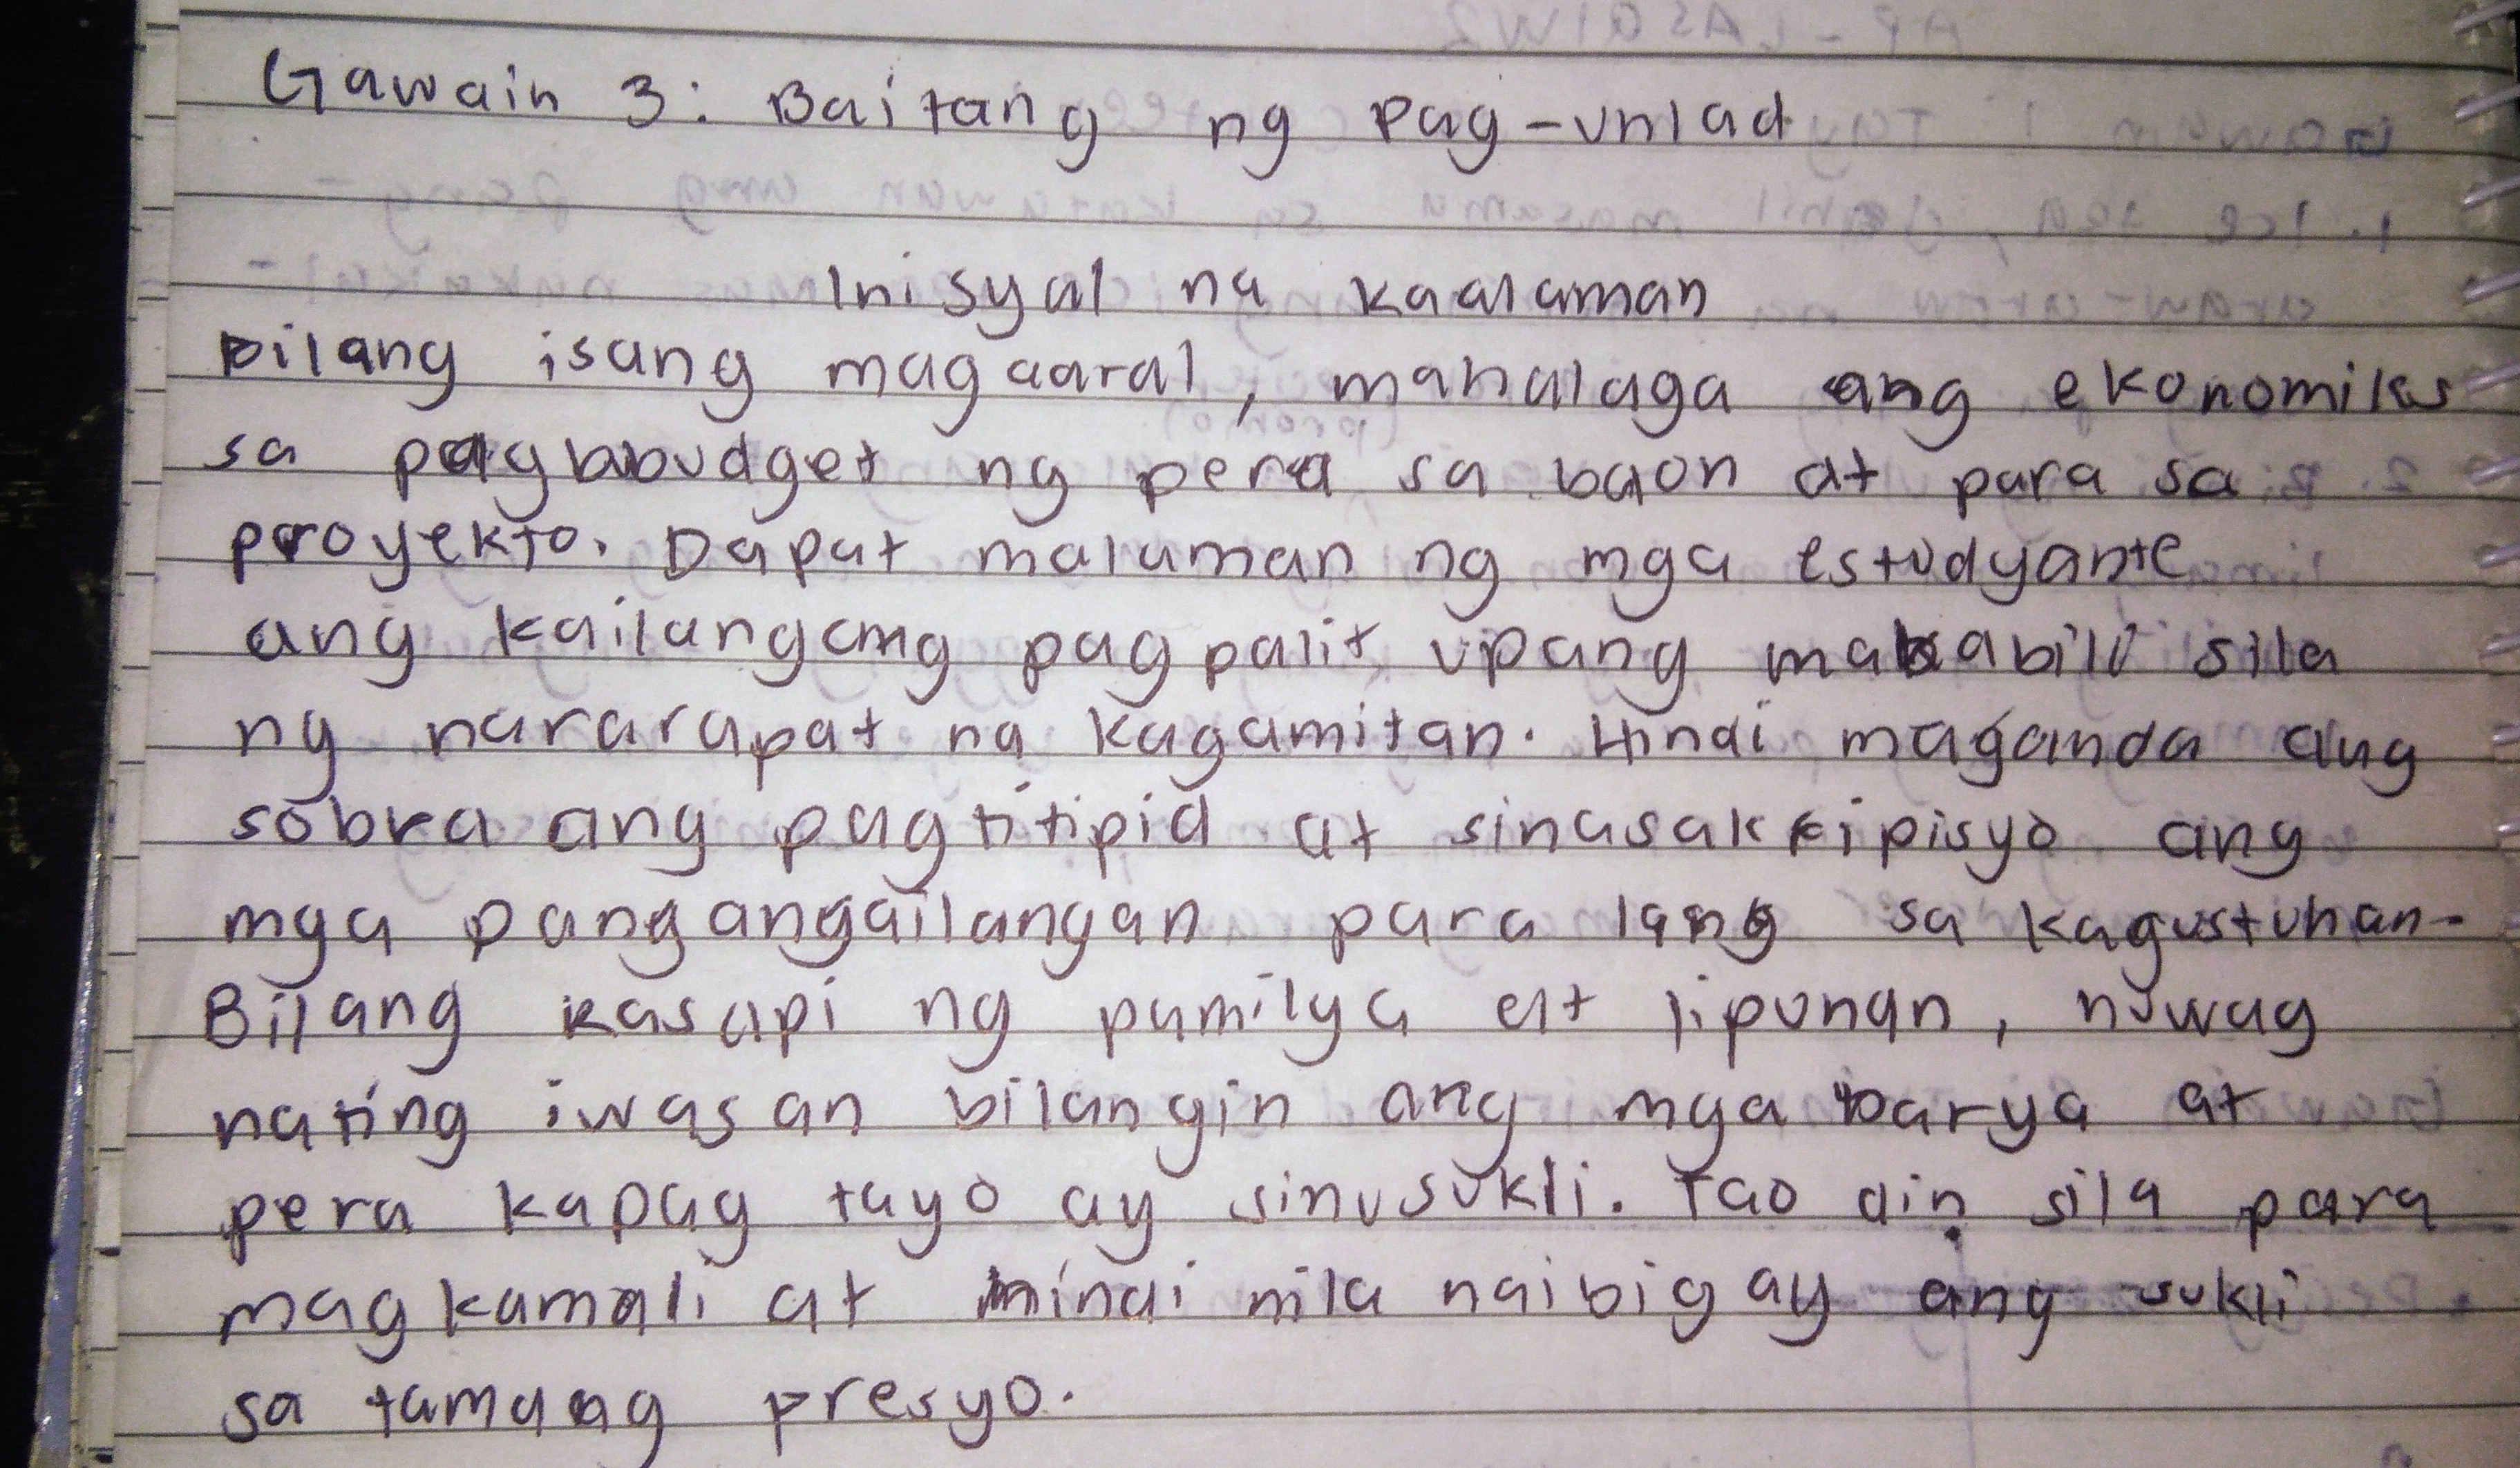 Gawain 3: Baitang ng Pag-unlad
Inisyal na kaalaman
Bilang isang magaaral, mahalaga ang ekonomiks
sa pagbabudget ng pera sa baon at para sa
proyekto. Dapat malaman ng mga estudyante
ang kailangang pagpalit upang makabili sila
ng nararapat na kagamitan. Hindi maganda ang
sobra ang pagtitipid at sinasakripisyo ang
mga pangangailangan para lang sa kagustuhan.
Bilang kasapi ng pamilya at lipunan, huwag
nating iwasan bilangin ang mga barya at
pera kapag tayo ay sinusukli. Tao din sila para
magkamali at hindi nila naibigay ang sukli
sa tamang presyo.